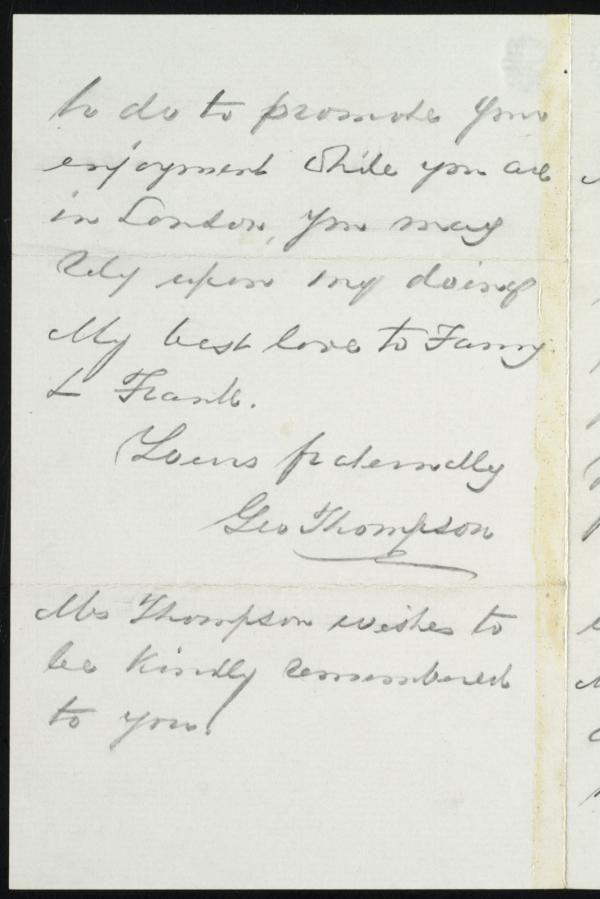 to do to promote your
enjoyment while you are
in London, you may
rely upon my doing
My best love to Fanny.
& Frank.
Yours fraternally
Geo Thompson
Mrs Thompson wishes to
be kindly remembered
to you.